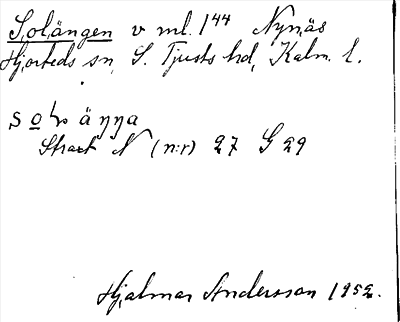 Solängen v ml. 1⁴⁴ Nynäs
Hjorteds sn, S. Tjusts hd, Kalm. l.
soläŋŋa
Strax N (n:r) 27 G 29
Hjalmar Andersson 1952.